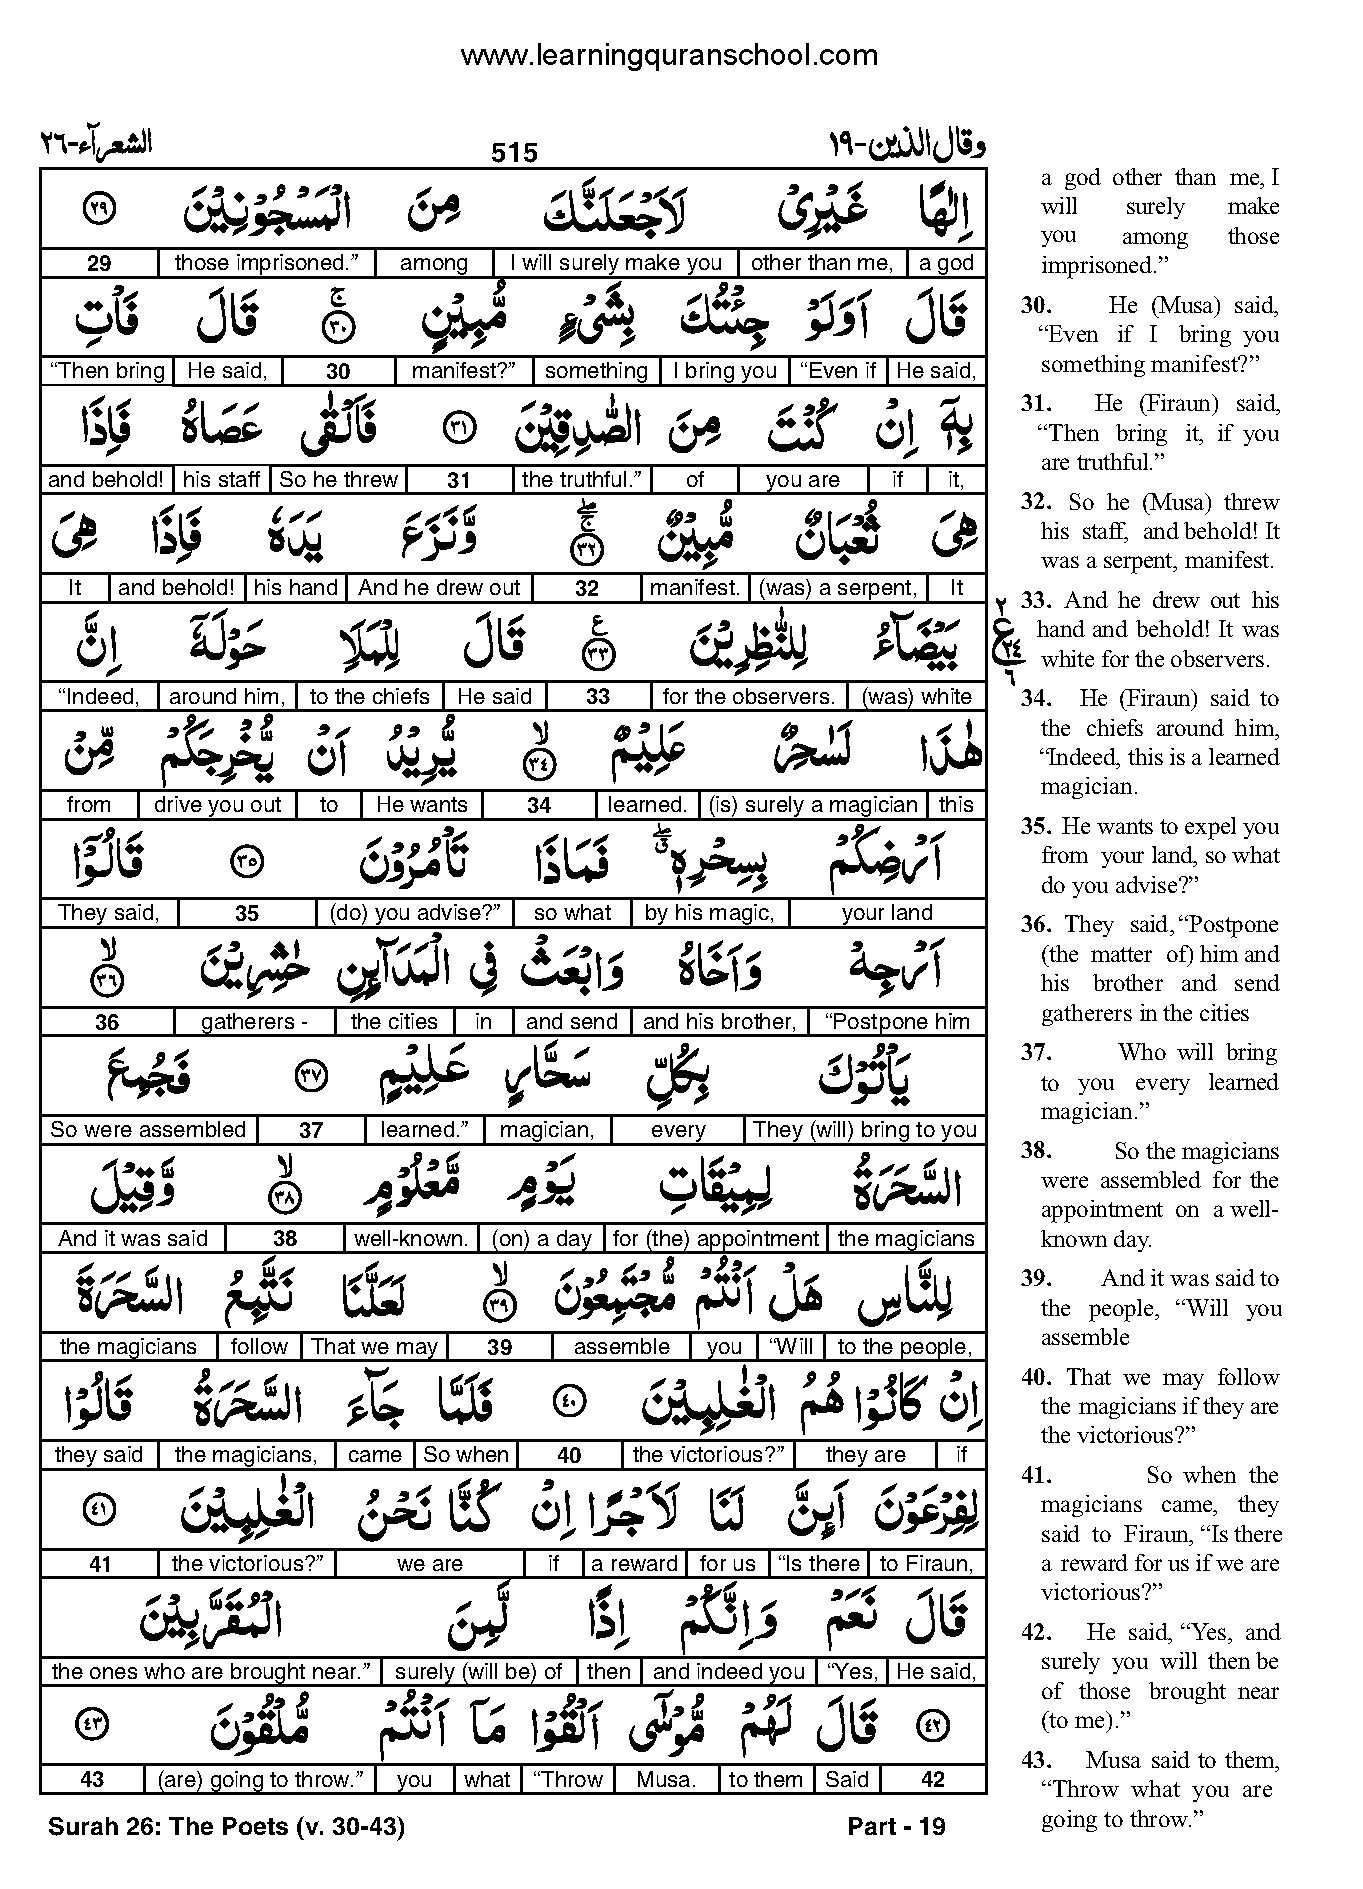 www.learningquranschool.com
وقال الذين-١٩
515
الشعرآء-٢٦
اِلٰهًا غَيْرِيْ لَاَجْعَلَنَّكَ مِنَ الْمَسْجُوْنِيْنَ ٢٩
a god | other than me, | I will surely make you | among | those imprisoned.” | 29
قَالَ اَوَلَوْ جِئْتُكَ بِشَيْءٍ مُّبِيْنٍ ۚ ٣٠ قَالَ فَاْتِ
He said, | “Even if | I bring you | something | manifest?” | 30 | He said, | “Then bring
بِهٖٓ اِنْ كُنْتَ مِنَ الصّٰدِقِيْنَ ٣١ فَاَلْقٰى عَصَاهُ فَاِذَا
it, | if | you are | of | the truthful.” | 31 | So he threw | his staff | and behold!
هِيَ ثُعْبَانٌ مُّبِيْنٌ ۚ ٣٢ وَّنَزَعَ يَدَهٗ فَاِذَا هِيَ
It | (was) a serpent, | manifest. | 32 | And he drew out | his hand | and behold! | It
بَيْضَآءُ لِلنّٰظِرِيْنَ ٣٣ ع قَالَ لِلْمَلَاِ حَوْلَهٗٓ اِنَّ
(was) white | for the observers. | 33 | He said | to the chiefs | around him, | “Indeed,
هٰذَا لَسٰحِرٌ عَلِيْمٌ ۙ ٣٤ يُّرِيْدُ اَنْ يُّخْرِجَكُمْ مِّنْ
this | (is) surely a magician | learned. | 34 | He wants | to | drive you out | from
اَرْضِكُمْ بِسِحْرِهٖ ۖ فَمَاذَا تَاْمُرُوْنَ ٣٥ قَالُوْٓا
your land | by his magic, | so what | (do) you advise?” | 35 | They said,
اَرْجِهْ وَاَخَاهُ وَابْعَثْ فِي الْمَدَآىِٕنِ حٰشِرِيْنَ ۙ ٣٦
“Postpone him | and his brother, | and send | in | the cities | gatherers - | 36
يَاْتُوْكَ بِكُلِّ سَحَّارٍ عَلِيْمٍ ٣٧ فَجُمِعَ
They (will) bring to you | every | magician, | learned.” | 37 | So were assembled
السَّحَرَةُ لِمِيْقَاتِ يَوْمٍ مَّعْلُوْمٍ ۙ ٣٨ وَّقِيْلَ
the magicians | for (the) appointment | (on) a day | well-known. | 38 | And it was said
لِلنَّاسِ هَلْ اَنْتُمْ مُّجْتَمِعُوْنَ ۙ ٣٩ لَعَلَّنَا نَتَّبِعُ السَّحَرَةَ
to the people, | “Will | you | assemble | 39 | That we may | follow | the magicians
اِنْ كَانُوْا هُمُ الْغٰلِبِيْنَ ٤٠ فَلَمَّا جَآءَ السَّحَرَةُ قَالُوْا
if | they are | the victorious?” | 40 | So when | came | the magicians, | they said
لِفِرْعَوْنَ اَىِٕنَّ لَنَا لَاَجْرًا اِنْ كُنَّا نَحْنُ الْغٰلِبِيْنَ ٤١
to Firaun, | “Is there | for us | a reward | if | we are | the victorious?” | 41
قَالَ نَعَمْ وَاِنَّكُمْ اِذًا لَّمِنَ الْمُقَرَّبِيْنَ
He said, | “Yes, | and indeed you | then | surely (will be) of | the ones who are brought near.”
٤٢ قَالَ لَهُمْ مُّوْسٰٓى اَلْقُوْا مَآ اَنْتُمْ مُّلْقُوْنَ ٤٣
42 | Said | to them | Musa. | “Throw | what | you | (are) going to throw.” | 43
Surah 26: The Poets (v. 30-43)
Part - 19
٢
ع
٣٤
٦
a god other than me, I
will surely make
you among those
imprisoned.”
30. He (Musa) said,
“Even if I bring you
something manifest?”
31. He (Firaun) said,
“Then bring it, if you
are truthful.”
32. So he (Musa) threw
his staff, and behold! It
was a serpent, manifest.
33. And he drew out his
hand and behold! It was
white for the observers.
34. He (Firaun) said to
the chiefs around him,
“Indeed, this is a learned
magician.
35. He wants to expel you
from your land, so what
do you advise?”
36. They said, “Postpone
(the matter of) him and
his brother and send
gatherers in the cities
37. Who will bring
to you every learned
magician.”
38. So the magicians
were assembled for the
appointment on a well-
known day.
39. And it was said to
the people, “Will you
assemble
40. That we may follow
the magicians if they are
the victorious?”
41. So when the
magicians came, they
said to Firaun, “Is there
a reward for us if we are
victorious?”
42. He said, “Yes, and
surely you will then be
of those brought near
(to me).”
43. Musa said to them,
“Throw what you are
going to throw.”